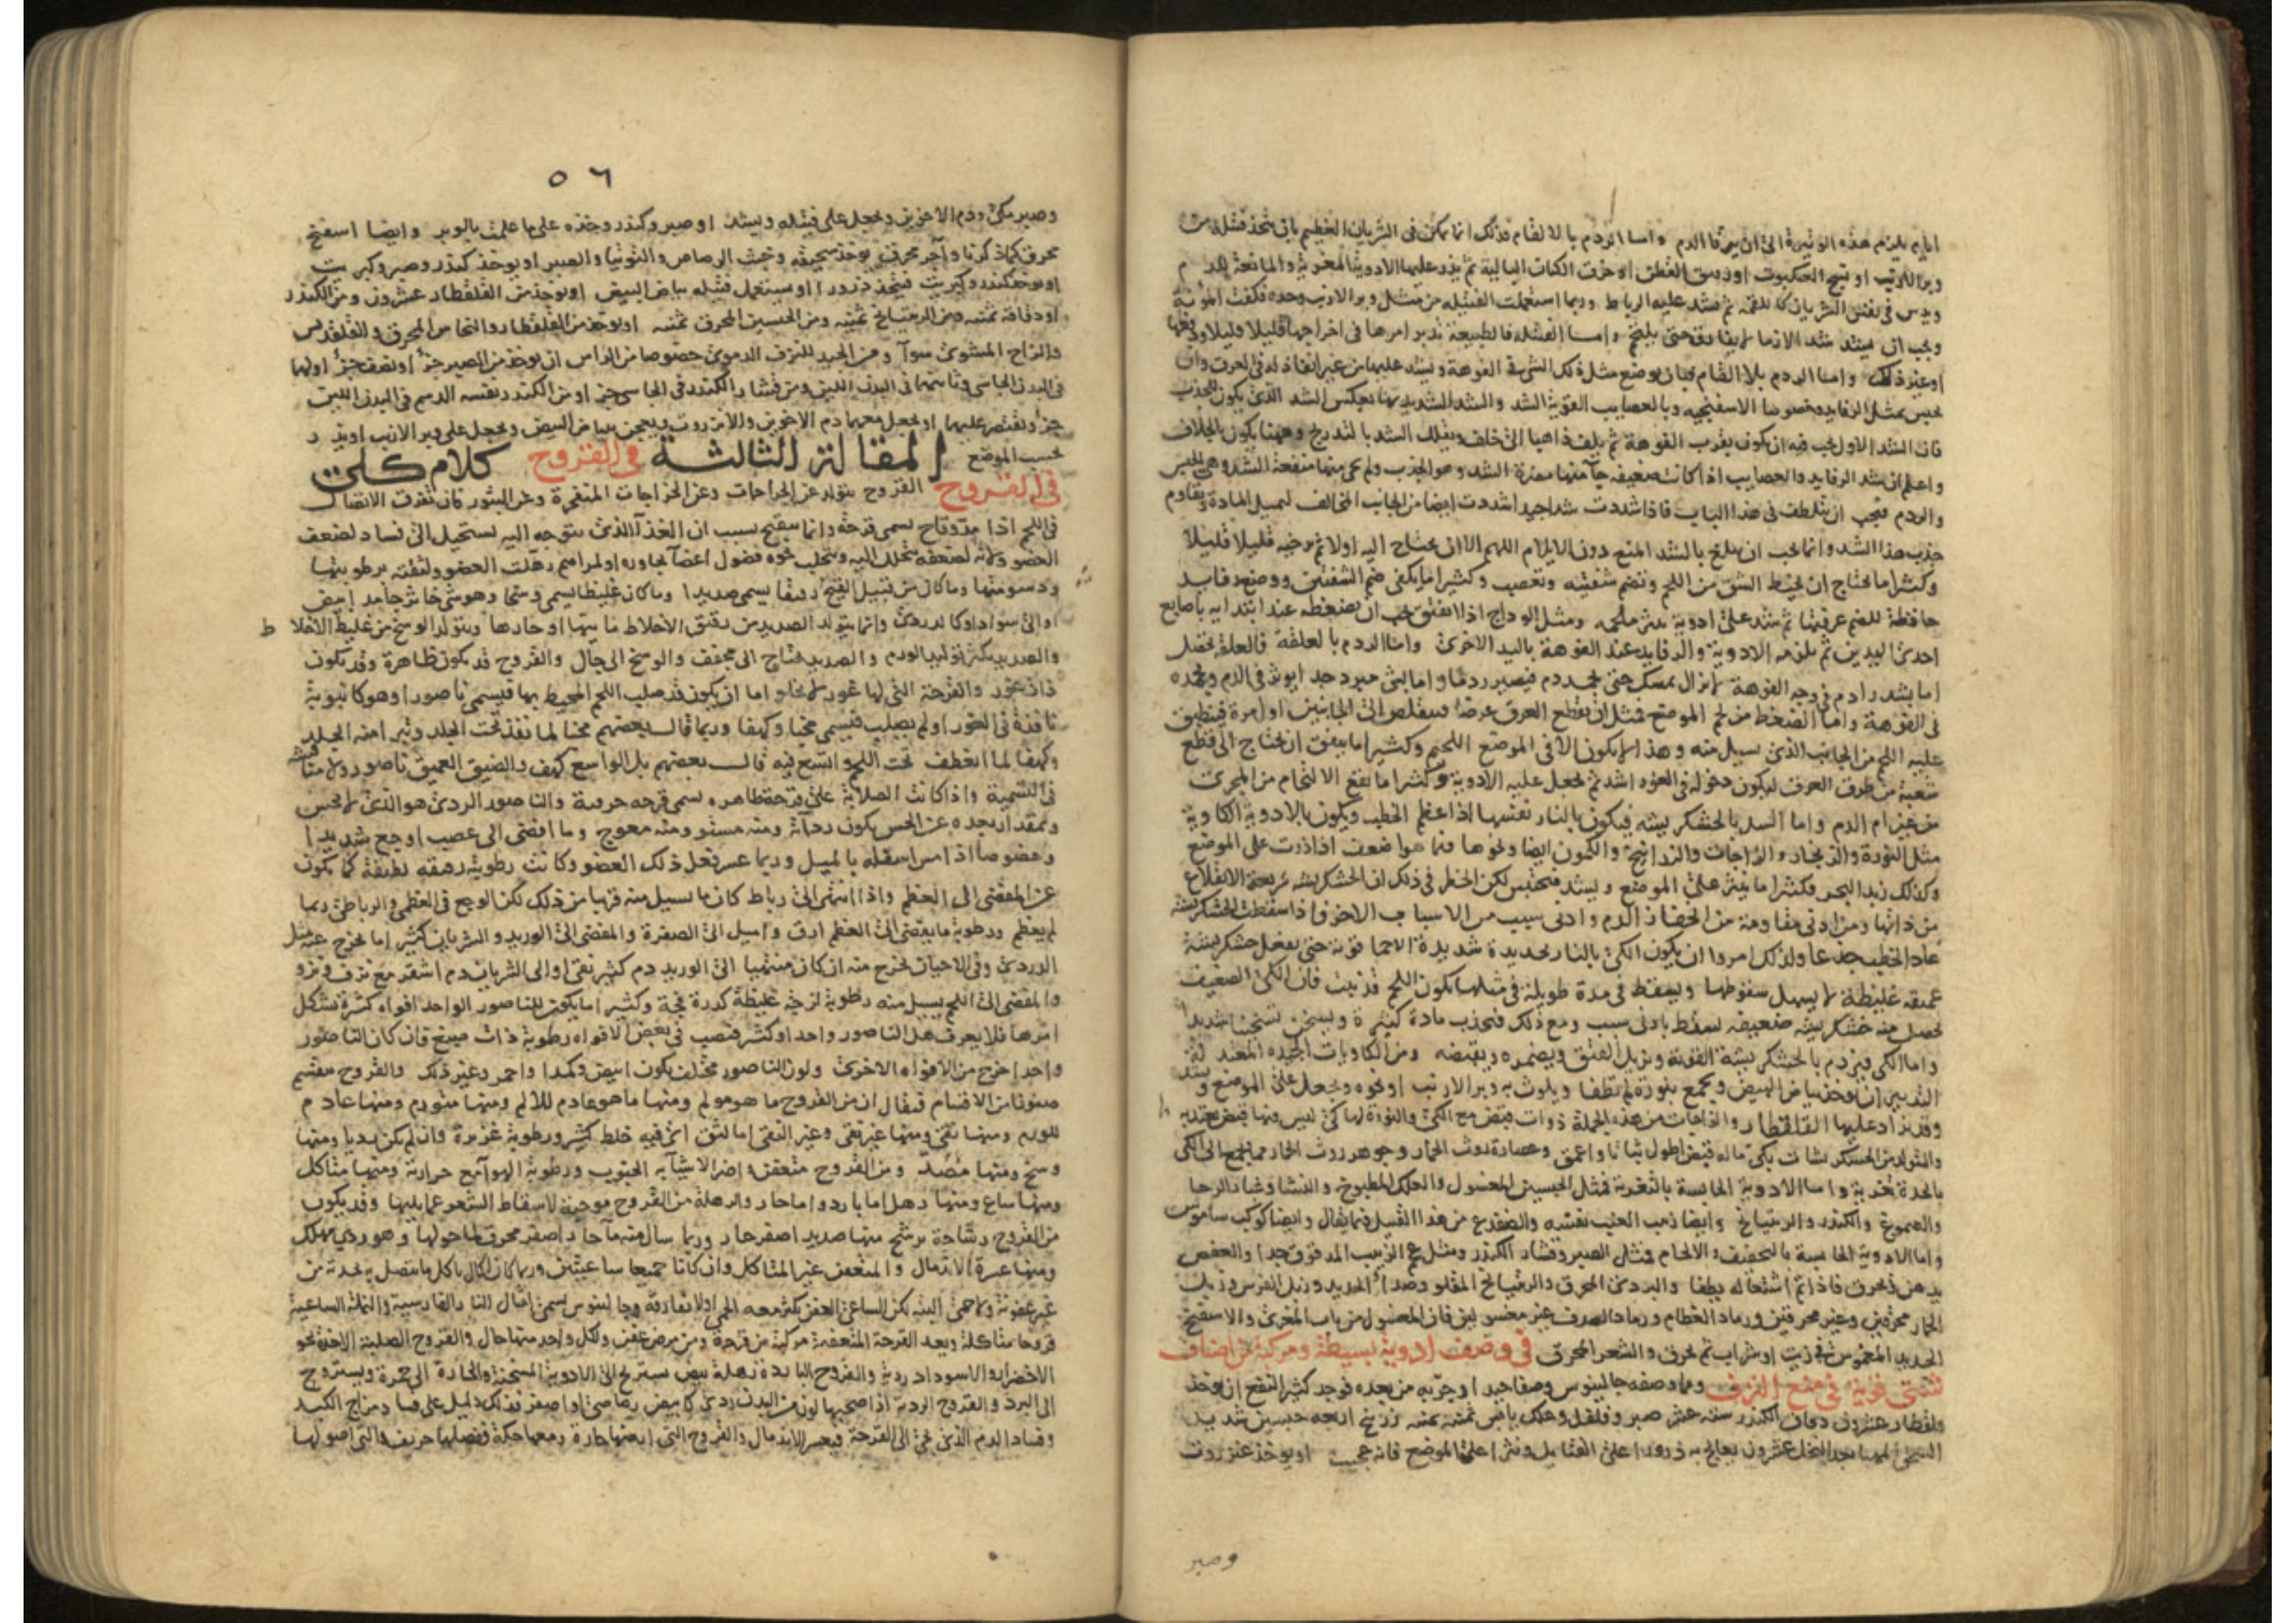 ايام يلزم هذه الوتيرة الى ان يرقا الدم واما الردم بالالقام فذلك انما يمكن فى الشريان العظيم بان يتخذ فتيلة من
وبر الارنب او نسج العنكبوت او رقيق القطن او خرق الكتان البالية ثم يذر عليها الادوية المغرية والمانعة للدم
ويدس فى نفس الشريان كاللقمة ثم يشد عليه الرباط وربما استعملت الفتيلة من مثل وبر الارنب وحده فكفت المؤنة
ويجب ان يشد شد الازما لا يفارق حتى يلتحم واما الفتيلة فالطبيعة تدبر امرها فى اخراجها قليلا قليلا
او غير ذلك واما الردم بلا القام فبان يوضع مثل ذلك الشى فى الفوهة ويشد عليها من غير انفاذ له فى العرق وان
يحبس بمثل الرفايد وخصوصا الاسفنجيه وبالعصايب القوية الشد والشد الشديد بعكس الشد الذى يكون للجذب
فان الشد الاول يجب فيه ان يكون بقرب الفوهة ثم يلف ذاهبا الى خلف ويقلل الشد بالتدريج وههنا يكون بالخلاف
واعلم ان شد الرفايد والعصايب اذا كانت ضعيفة جآ منها مضرة الشد وهو الجذب ولم يجى منها منفعة الشد وهى الحبس
والردم فيجب ان يتلطف فى هذا الباب فاذا شددت شدا جيدا شددت ايضا من الجانب المخالف لتميل المادة وتقاوم
جذب هذا الشد وانما يجب ان يبلغ بالشد المنع دون الايلام اللهم الا ان يحتاج اليه اولا ثم ترخيه قليلا قليلا
وكثيرا ما يحتاج ان يخيط الشق من اللحم وتضم شفتيه وتعصب وكثيرا ما يكفى ضم الشفتين ووضع رفايد
حافظة للضم ثم تشد على ادوية تنثر ملحمه ومثل الوداج اذا انفتق يجب ان يضغطه عند ابتدايه باصابع
احدى اليدين ثم يلزمه الادوية والرفايد عند الفوهة باليد الاخرى واما الردم بالعلقة فالعلقة تحصل
اما بشد رادم فى وجه الفوهة لا يزال يمسك حتى يجمد دم فيصير ردما واما بشى مبرد جدا يوثر فى الدم ويجمده
فى الفوهة واما الضغط من لحم الموضع فمثل ان يقطع العرق عرضا فيتقلص الى الجانبين فينطبق
عليه اللحم من الجانب الذى يسيل منه وهذا لا يكون الا فى الموضع اللحيم وكثيرا ما يتفق ان يحتاج الى قطع
شعبة من طرف العرق ليكون دخوله فى الغور اشد ثم يجعل عليه الادوية وكثيرا ما يقع الالتحام من المجرى
من غير ام الدم واما السد بالخشكريشه فيكون بالنار نفسها اذا عظم الخطب ويكون بالادوية الكاوية
مثل النورة والزنجار والزاجات والزرانيخ والكمون ايضا ونحوها فما هو اضعف اذا ذرت على الموضع
وكذلك زبد البحر فكثيرا ما ينثر على الموضع ويشد فيحتبس لكن الخطر فى ذلك ان الخشكريشه سريعة الانقلاع
من ذاتها ومن ادنى مقاومة من الحفاز الدم وادنى سبب من الاسباب الاخر واذا سقطت الخشكريشه
عاد الخطب جذعا ولذلك امروا ان يكون الكى بالنار بحديدة شديدة الاحما قوية حتى تفعل خشكريشة
عميقه غليظة لا يسهل سقوطها ويسقط فى مدة طويلة فى مثلها يكون اللحم قد نبت فان الكى الضعيف
يحصل منه خشكريشه ضعيفه تسقط بادنى سبب ومع ذلك فتجذب مادة كثيرة ويسخن تسخينا شديدا
واما الكى فيردم بالخشكريشة القوية ويزيل الفتق ويضمره ويقبضه ومن الكاويات الجيده المعتدلة
التدبير ان يوخذ بياض البيض ويجمع بنورة لم تطفا ويلوث به وبر الارنب او نحوه ويجعل على الموضع ويشد
وقد يزاد عليها القلقطار والزاجات من هذه الجملة ذوات قبض مع الكى والنورة لها كى ليس فيها قبض يعتد به
والمتولد من الخشكريشات بكى ما له قبض اطول ثباتا واعمق وعصارة روث الحمار وجوهر روث الحمار مما يجمع الى الكى
بالحدة تغرية واما الادوية الحابسة بالتغرية فمثل الجبسين المغسول والعلك المطبوخ والنشا وغبار الرحا
والصموغ والكندر والريتيانج وايضا زهب العنب نفسه والضفدع من هذا القبيل فيما يقال وايضا كوكب ساموس
واما الادوية الحابسة بالتجفيف والالحام فمثل الصبر وقشار الكندر ومثل عجم الزبيب المدقوق جدا والعفص
يدهن ثم يحرق فاذا تم اشتعاله يطفا والبردى المحرق والريتيانج المقلو وصدا الحديد وزبل الفرس وزبل
الحمار محرقين وغير محرقين ورماد العظام ورماد الصدف غير مغسولين فان المغسول من باب المغرى والاسفنج
الجديد المغموس فى زيت او شراب ثم يحرق والشعر المحرق فى وصف ادوية بسيطة ومركبة من اصناف
شتى قوية فى منع النزف ومما وصفه جالينوس وصفا جيدا وجربه من بعده فوجد كثير النفع ان يوخذ
قلقطار عشرون دقاق الكندر ستة عشر صبر وقلقل وعلك يابس ثمنيه ثمنيه زرنيخ اربعه جبسين شديد
السحق مهيا بعد النخل عشرون يعالج به ذرورا على الفتايل ونثرا على الموضع فانه عجيب او يوخذ عنزروت
وصبر
٥٦
وصبر مكى ودم الاخوين ويجعل على فتيله ويشد او صبر وكندر وحده على ما علمت بالوبر وايضا اسفنج
محرق كما ذكرنا وآجر محرق يوخذ سحيقه وخبث الرصاص والتوتيا والصبر او يوخذ كندر وصبر وكبريت
او يوخذ كندر وكبريت فيتخذ ذرورا او يستعمل فتيله ببياض البيض او يوخذ من القلقطار عشرون ومن الكندر
او دقاقه ثمنيه ومن الريتيانج ثمنيه ومن الجبسين المحرق ثمنيه او يوخذ من القلقطار والنحاس المحرق والقلقديس
والزاج المشوى سوآ ومن الجيد للنزف الدموى خصوصا من الراس ان يوخذ من الصبر جزؤ او نصف جزؤ اولهما
فى البدن الجاسى وثانيهما فى البدن اللين ومن قشار الكندر فى الجاسى جزو او من الكندر نفسه الدسم فى البدن اللين
جزؤ ويقتصر عليهما او يجعل معهما دم الاخوين والانزروت ويعجن ببياض البيض ويجعل على وبر الارنب او يذر
بحسب الموضع المقالة الثالثة فى القروح كلام كلى
فى القروح القروح تتولد عن الجراحات وعن الخراجات المتفجرة وعن البثور فان تفرق الاتصال
فى اللحم اذا مدّ وقاح يسمى قرحة وانما يتقيح بسبب ان الغذآ الذى يتوجه اليه يستحيل الى فساد لضعف
العضو ولانه لضعفه يتحلل اليه ويتحلب نحوه فضول اعضآ يجاوره او لمراهم رهلت العضو ولثقته برطوبتها
ودسومتها وما كان من قبيل القيح رقيقا يسمى صديدا وما كان غليظا يسمى وسخا وهو شى خاثر جامد ابيض
او الى سواد او كالدردى وانما يتولد الصديد من رقيق الاخلاط مائيتها او حادها ويتولد الوسخ من غليظ الاخلاط
والصديد يكثر توليد الورم والصديد يحتاج الى مجفف والوسخ الى جال والقروح قد يكون ظاهرة وقد يكون
ذات غور والقرحة التى لها غور لا يخلو اما ان يكون قد صلب اللحم المحيط بها فيسمى ناصورا وهو كانبوبة
نافذة فى الغور او لم يصلب فيسمى مخبا وكهفا وربما قال بعضهم مخبا لما نفذ تحت الجلد وتبرا منه الجلد
وكهفا لما انعطف تحت اللحم واتسع فيه قال بعضهم بل الواسع كهف والضيق العميق ناصور ولا مناقشه
فى التسمية واذا كانت الصلابة على قرحة ظاهره يسمى قرحه والناصور الردى هو الذى لا يحس
وبمقدار بعده عن الحس يكون رداته ومنه مستو ومنه معوج وما افضى الى عصب اوجع شديدا
وخصوصا اذا مس اسفله بالميل وربما عسر فعل ذلك العضو وكانت رطوبته رهقه لطيفة كما تكون
عن المفضى الى العظم واذا انتهى الى رباط كان ما يسيل منه قريبا من ذلك لكن الوجع فى العظمى والرباطى ربما
لم يعظم ورطوبة ما يفضى الى العظم ارق واميل الى الصفرة والمفضى الى الوريد والشريان كثيرا ما يخرج عنه مثل
الدردى وفى الاحيان يخرج منه ان كان منتهيا الى الوريد دم كثير نقى او الى الشريان دم اشقر مع نزف ونزو
والمفضى الى اللحم يسيل منه رطوبة لزجة غليظة كدرة فجة وكثيرا ما يكون للناصور الواحد افواه كثيرة يشكل
امرها فلا يعرف هل الناصور واحد او كثير فيصب فى بعض الافواه رطوبة ذات صبغ فان كان الناصور
واحدا خرج من الافواه الاخرى ولون الناصور مختلف يكون ابيض وكمدا واحمر وغير ذلك والقروح مقسم
صنوفا من الاقسام فيقال ان من القروح ما هو مولم ومنها ما هو عادم للالم ومنها متورم ومنها عادم
للورم ومنها نقى ومنها غير نقى وغير النقى اما لثق اى فيه خلط كثير ورطوبة غزيرة وان لم يكن رديا ومنها
وسخ ومنها صَدِىّ ومن القروح متعفن واضر الاشيآ به الجنوب ورطوبة الهوآ مع حرارته ومنها متاكل
ومنها ساع ومنها رهل اما بارد واما حار والرهلة من القروح موجبة لاسقاط الشعر عما يليها وقد يكون
من القروح رشاحة ترشح منها صديد اصفر حار وربما سال منه مآ حار اصفر محرق لما حولها وهو ردى مهلك
ومنها عسرة الاندمال والمتعفن غير المتاكل وان كانا جميعا ساعيتين وربما كان اكال ياكل ما يتصل به بحدته من
غير عفونة ولا حمى البته لكن الساعى العفن يكثر معه الحمى او لا يفارقه وجالينوس يسمى امثال النار الفارسية والنملة الساعية
قروحا متاكلة ويعد القرحة المتعفنة مركبة من قرحة ومن مرض عفن ولكل واحد منها حال والقروح الصلبة الاخذة نحو
الاخضرار والاسوداد ردية والقروح الباردة رهلة بيض يستريح الى الادوية المسخنة والحارة الى حمرة ويستريح
الى البرد والقروح الردية اذا صحبها لون من البدن ردى كابيض رصاصى او اصفر فذلك دليل على فساد مزاج الكبد
وفساد الدم الذى يجى الى القرحة فيعسر الاندمال والقروح التى ارضها حارة ومعها حكة وفضلها حريف والتى اصولها